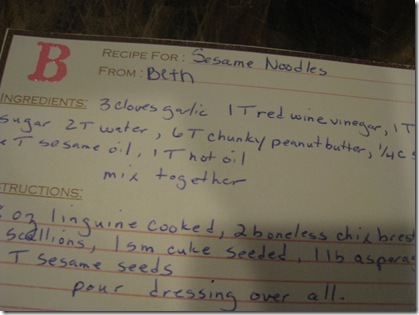 B
RECIPE FOR: Sesame Noodles
FROM: Beth
INGREDIENTS: 3 cloves garlic 1 T red wine vinegar, 1 T
sugar 2 T water, 6 T chunky peanut butter, 1/4 c s
T sesame oil, 1 T hot oil
mix together
STRUCTIONS:
oz linguine cooked, 2 boneless chix brest
scallions, 1 sm cuke seeded, 1 lb aspara
T sesame seeds
pour dressing over all.